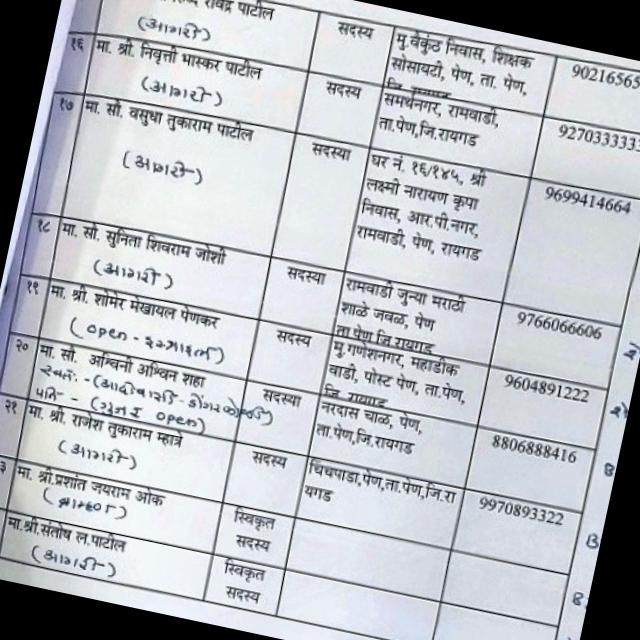 पाटील
(आगरी)
सदस्य
मु.वैकुंठ निवास, शिक्षक
सोसायटी, पेण, ता. पेण,
90216565
१६ मा. श्री. निवृत्ती भास्कर पाटील
(आगरी)
सदस्य
समर्थनगर, रामवाडी,
ता.पेण,जि.रायगड
927033333
१७ मा. सौ. वसुधा तुकाराम पाटील
(आगरी)
सदस्या
घर नं. १६/१४५, श्री
लक्ष्मी नारायण कृपा
निवास, आर.पी.नगर,
रामवाडी, पेण, रायगड
9699414664
१८ मा. सौ. सुनिता शिवराम जोशी
(आगरी)
सदस्या
रामवाडी जुन्या मराठी
शाळे जवळ, पेण
ता.पेण,जि.रायगड
9766066606
१९ मा. श्री. शोमेर मेखायल पेणकर
(open - इस्त्राइल)
सदस्य
मु.गणेशनगर, म्हाडीक
वाडी, पोस्ट पेण, ता.पेण,
जि.रायगड
9604891222
२० मा. सौ. अश्विनी अश्विन शहा
पति - (गुजर open)
सदस्या
नरदास चाळ, पेण,
ता.पेण,जि.रायगड
8806888416
२१ मा. श्री. राजेश तुकाराम म्हात्रे
(आगरी)
सदस्य
चिंचपाडा,पेण,ता.पेण,जि.रा
यगड
9970893322
मा. श्री.प्रशांत जयराम ओक
(ब्राम्हण)
स्विकृत
सदस्य
मा.श्री.संतोष ल.पाटील
(आगरी)
स्विकृत
सदस्य